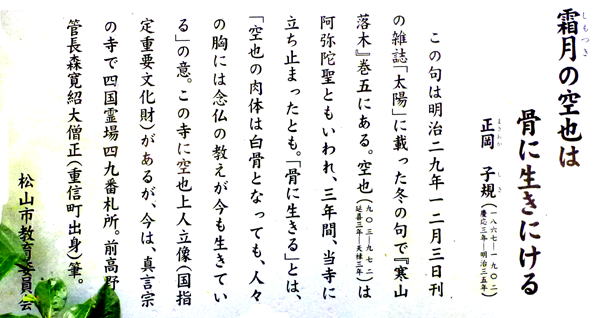 霜月の空也は
しもつき
骨に生きにける
正岡 子規
まさおか しき
(一八六七―一九〇二
慶応三年―明治三五年)
この句は明治二九年一二月三日刊
の雑誌「太陽」に載った冬の句で『寒山
落木』巻五にある。空也(九〇三―九七二
延喜三年―天禄三年)は
阿弥陀聖ともいわれ、三年間、当寺に
立ち止まったとも。「骨に生きる」とは、
「空也の肉体は白骨となっても、人々
の胸には念仏の教えが今も生きてい
る」の意。この寺に空也上人立像(国指
定重要文化財)があるが、今は、真言宗
の寺で四国霊場四九番札所。前高野
管長森寛紹大僧正(重信町出身)筆。
松山市教育委員会